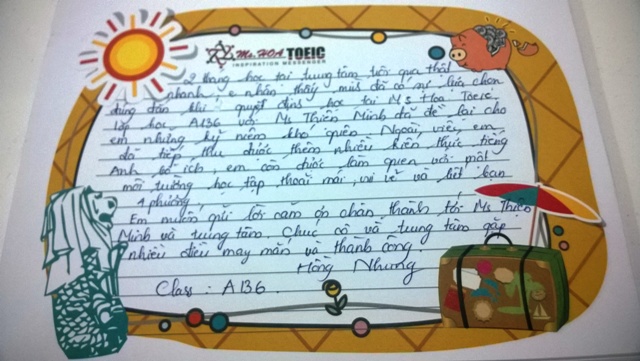 Ms. HOA TOEIC
INSPIRATION MESSENGER
2 tháng học tại trung tâm trôi qua thật
nhanh, e nhận thấy mình đã có sự lựa chọn
đúng đắn khi quyết định học tại Ms Hoa Toeic.
lớp học A136 với Ms Thiên Minh đã để lại cho
em những kỷ niệm khó quên. Ngoài việc em
đã tiếp thu được thêm nhiều kiến thức tiếng
Anh bổ ích, em còn được làm quen với một
môi trường học tập thoải mái, vui vẻ và biết bạn
4 phương.
Em muốn gửi lời cảm ơn chân thành tới Ms Thiên
Minh và trung tâm. Chúc cô và trung tâm gặp
nhiều điều may mắn và thành công.
Hồng Nhung
Class : A136.